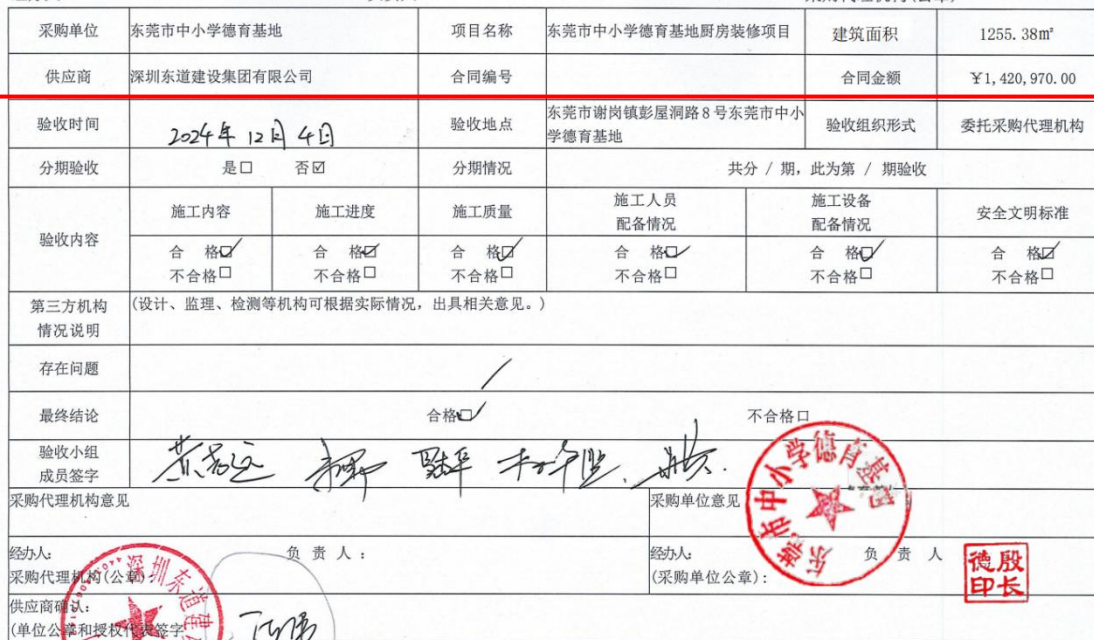 采购单位 东莞市中小学德育基地 项目名称 东莞市中小学德育基地厨房装修项目 建筑面积 1255.38㎡
供应商 深圳东道建设集团有限公司 合同编号 合同金额 ¥1,420,970.00
验收时间 2024年12月4日 验收地点 东莞市谢岗镇彭屋洞路8号东莞市中小
学德育基地 验收组织形式 委托采购代理机构
分期验收 是□ 否☑ 分期情况 共分 / 期，此为第 / 期验收
验收内容 施工内容 施工进度 施工质量 施工人员
配备情况 施工设备
配备情况 安全文明标准
合 格☑ 合 格☑ 合 格☑ 合 格☑ 合 格☑ 合 格☑
不合格□ 不合格□ 不合格□ 不合格□ 不合格□ 不合格□
第三方机构
情况说明 (设计、监理、检测等机构可根据实际情况，出具相关意见。)
存在问题 /
最终结论 合格☑ 不合格□
验收小组
成员签字
采购代理机构意见 采购单位意见
东莞市中小学德育基地
经办人: 负 责 人 : 经办人: 负 责 人
采购代理机构(公章): (采购单位公章):
殷长
德印
深圳东道建
供应商确认:
(单位公章和授权代表签字